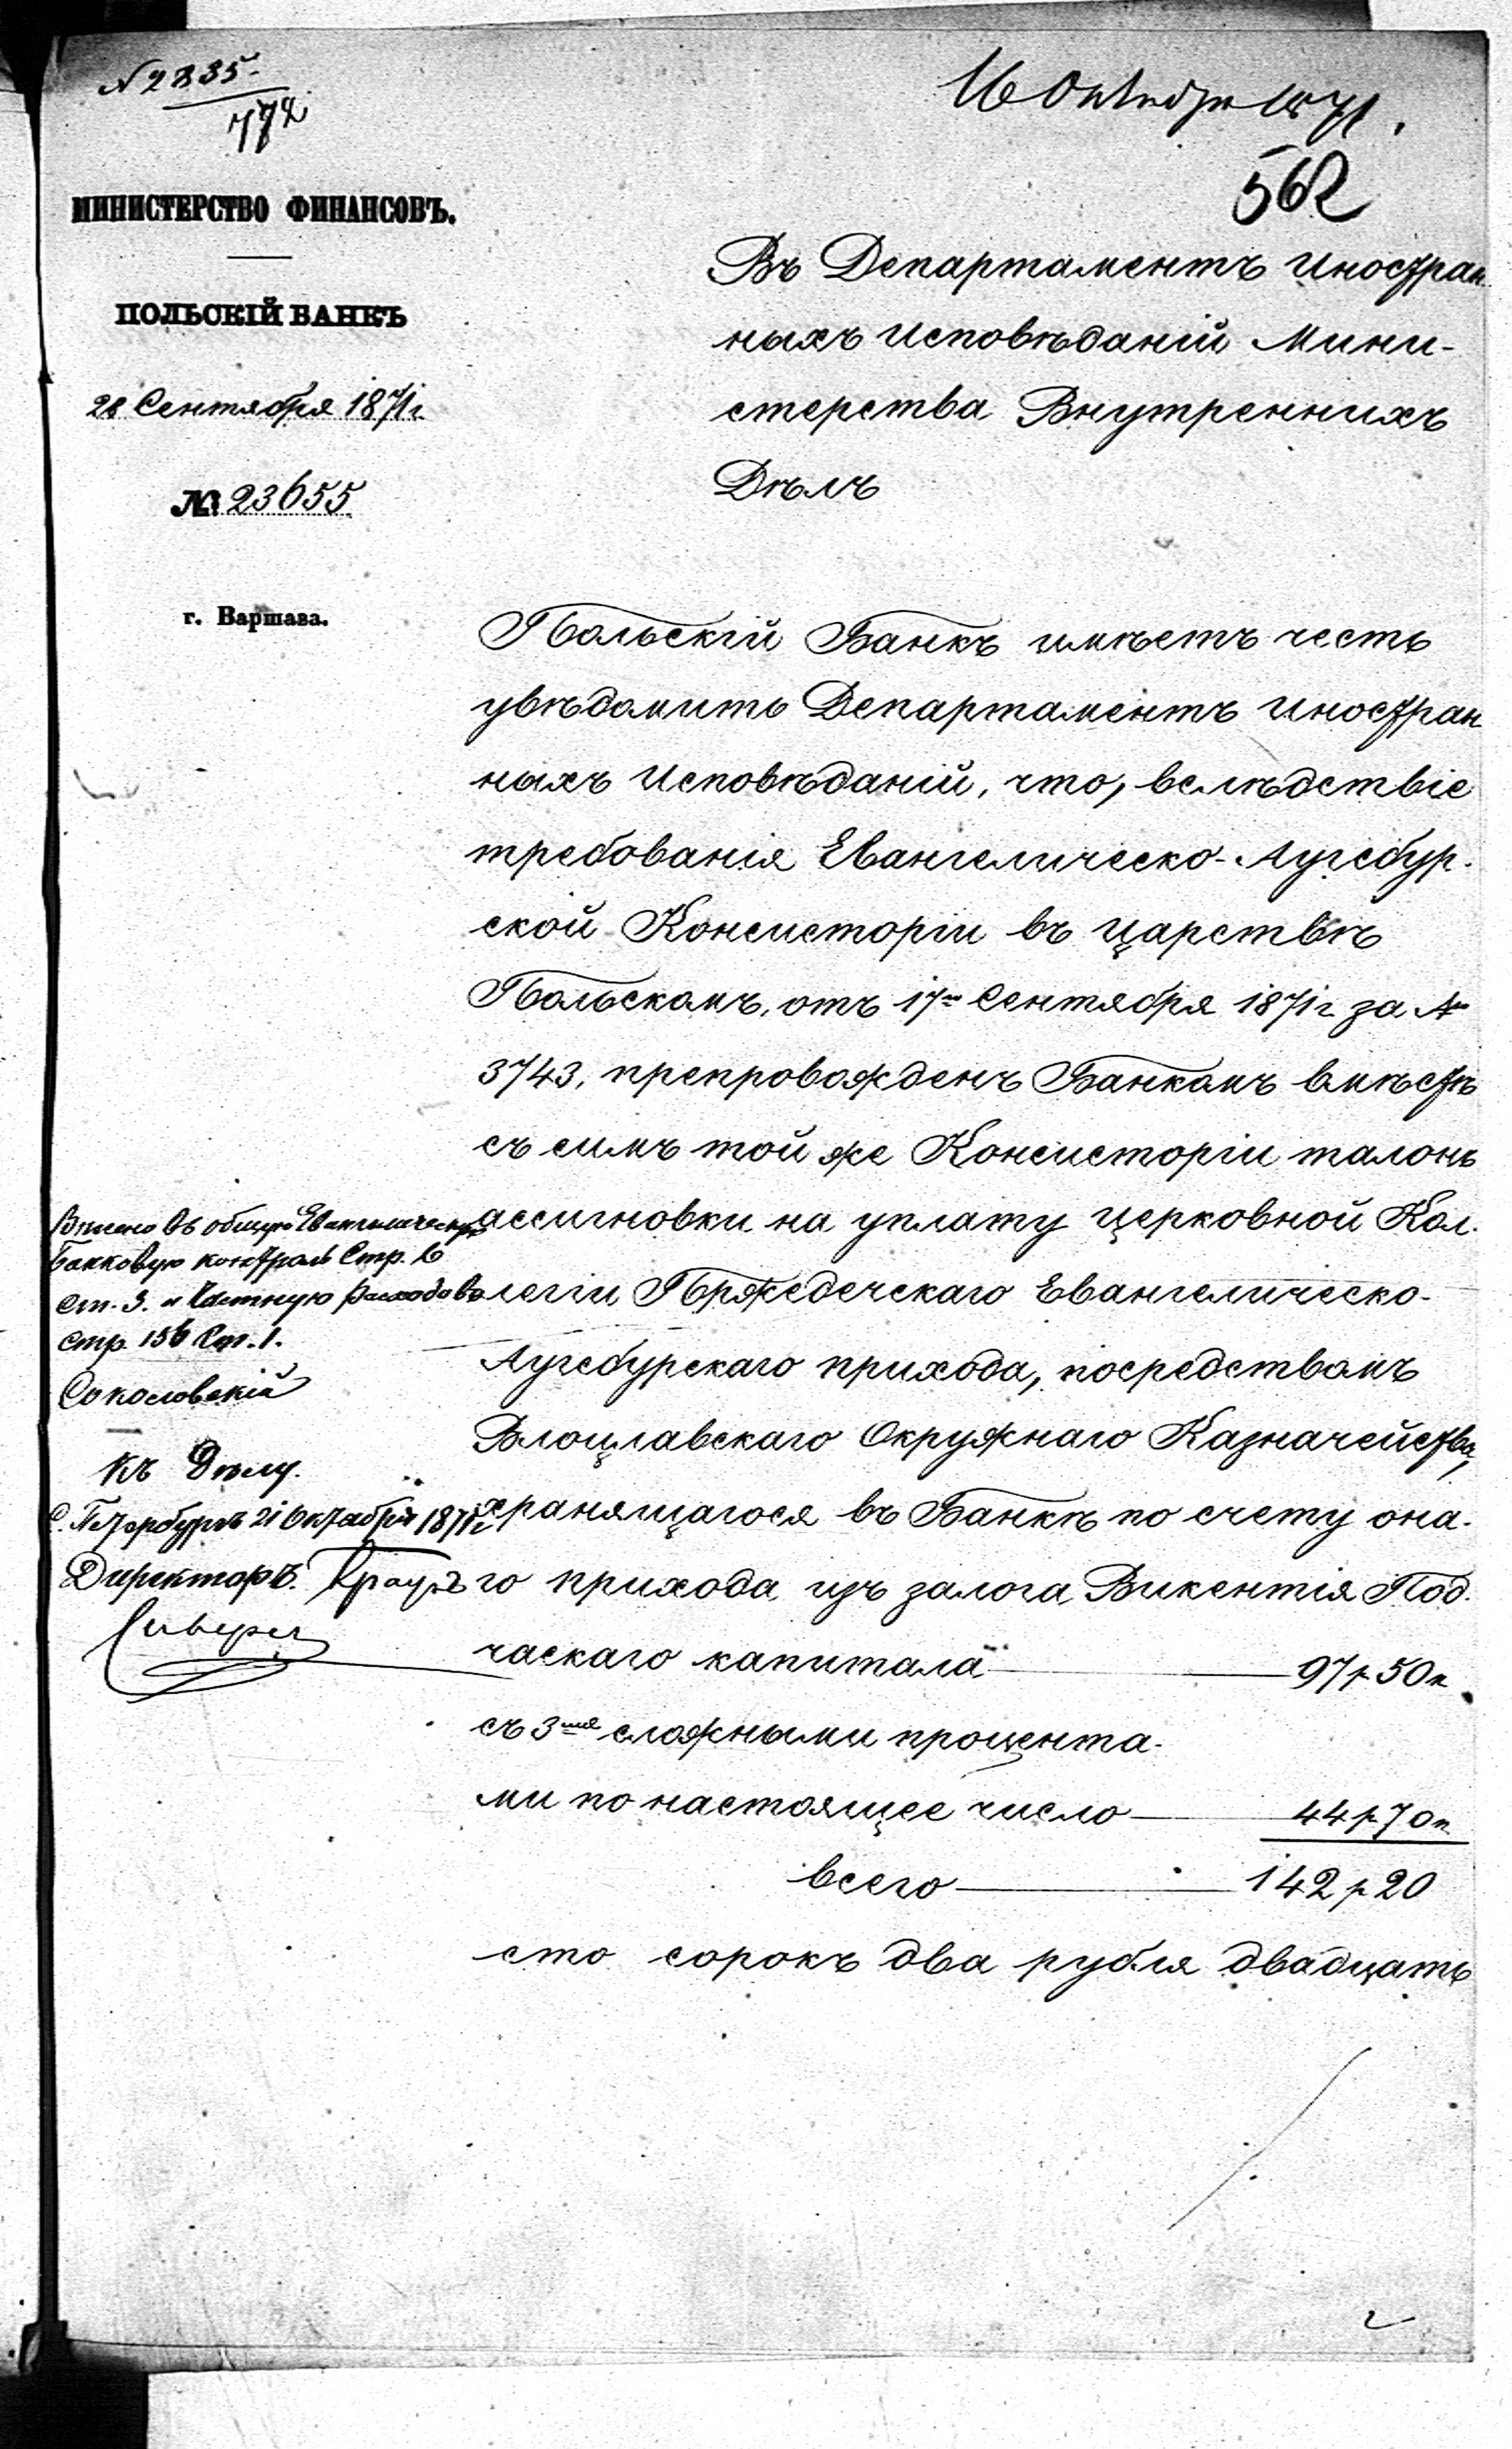 № 2835
772
16 Октября 1871.
562
МИНИСТЕРСТВО ФИНАНСОВЪ.
ПОЛЬСКІЙ БАНКЪ
28 Сентября 1871 г.
№ 23655
г. Варшава.
Въ Департаментъ Иностран
ныхъ Исповѣданій Мини-
стерства Внутреннихъ
Дѣлъ
Польскій Банкъ имѣетъ честь
увѣдомить Департаментъ Иностран
ныхъ Исповѣданій, что, вслѣдствіе
требованія Евангелическо-Аугсбур-
ской Консисторіи въ Царствѣ
Польскомъ, отъ 17го Сентября 1871 г за №
3743, препровожденъ Банкомъ вмѣстѣ
съ симъ той же Консисторіи талонъ
ассигновки на уплату церковной Кол-
легіи Пржедечскаго Евангелическо-
Аугсбурскаго прихода, посредствомъ
Влоцлавскаго Окружнаго Казначейства,
хранящагося въ Банкѣ по счету она-
го прихода изъ залога Викентія Под-
часкаго капитала 97 р 50 к
съ 3мя сложными процента-
ми по настоящее число 44 р 70 к
всего 142 р 20
сто сорокъ два рубля двадцать
въ общую Евангелическую
Банковую контроль Стр. 6
ст. 3. и Частную
стр. 156 Ст. 1.
Соколовскій
Къ Дѣлу.
С. Петербургъ 21 Октября 1871 г
Директоръ. Графъ
Сиверсъ